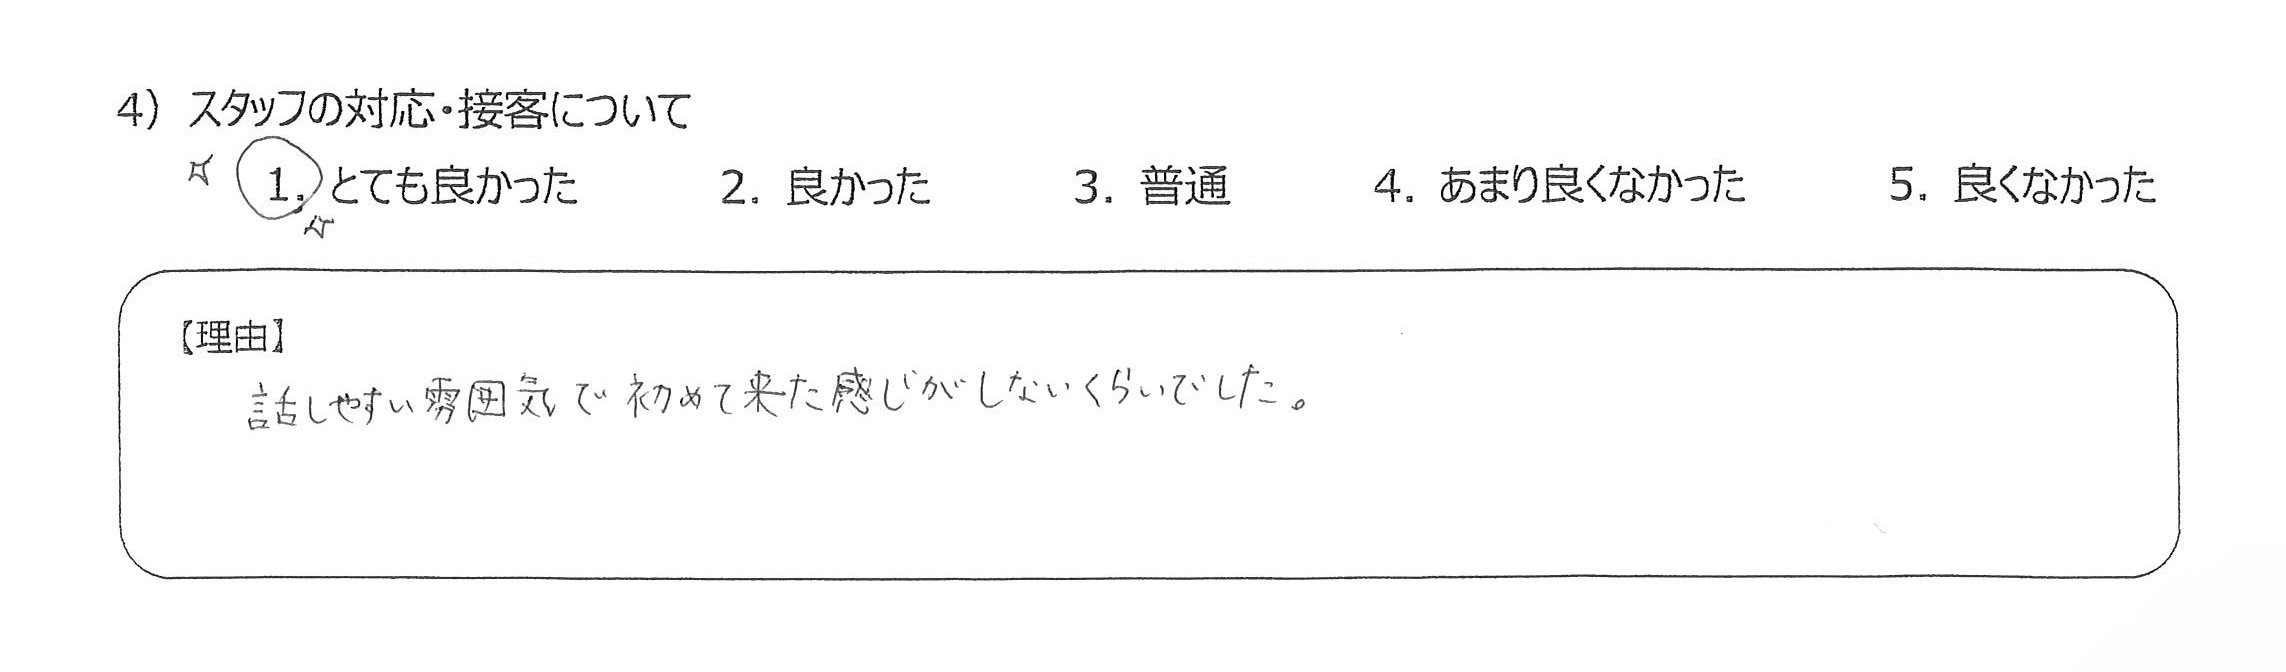 4) スタッフの対応・接客について
☆ 1. とても良かった 2. 良かった 3. 普通 4. あまり良くなかった 5. 良くなかった
☆
【理由】
話しやすい雰囲気で初めて来た感じがしないくらいでした。